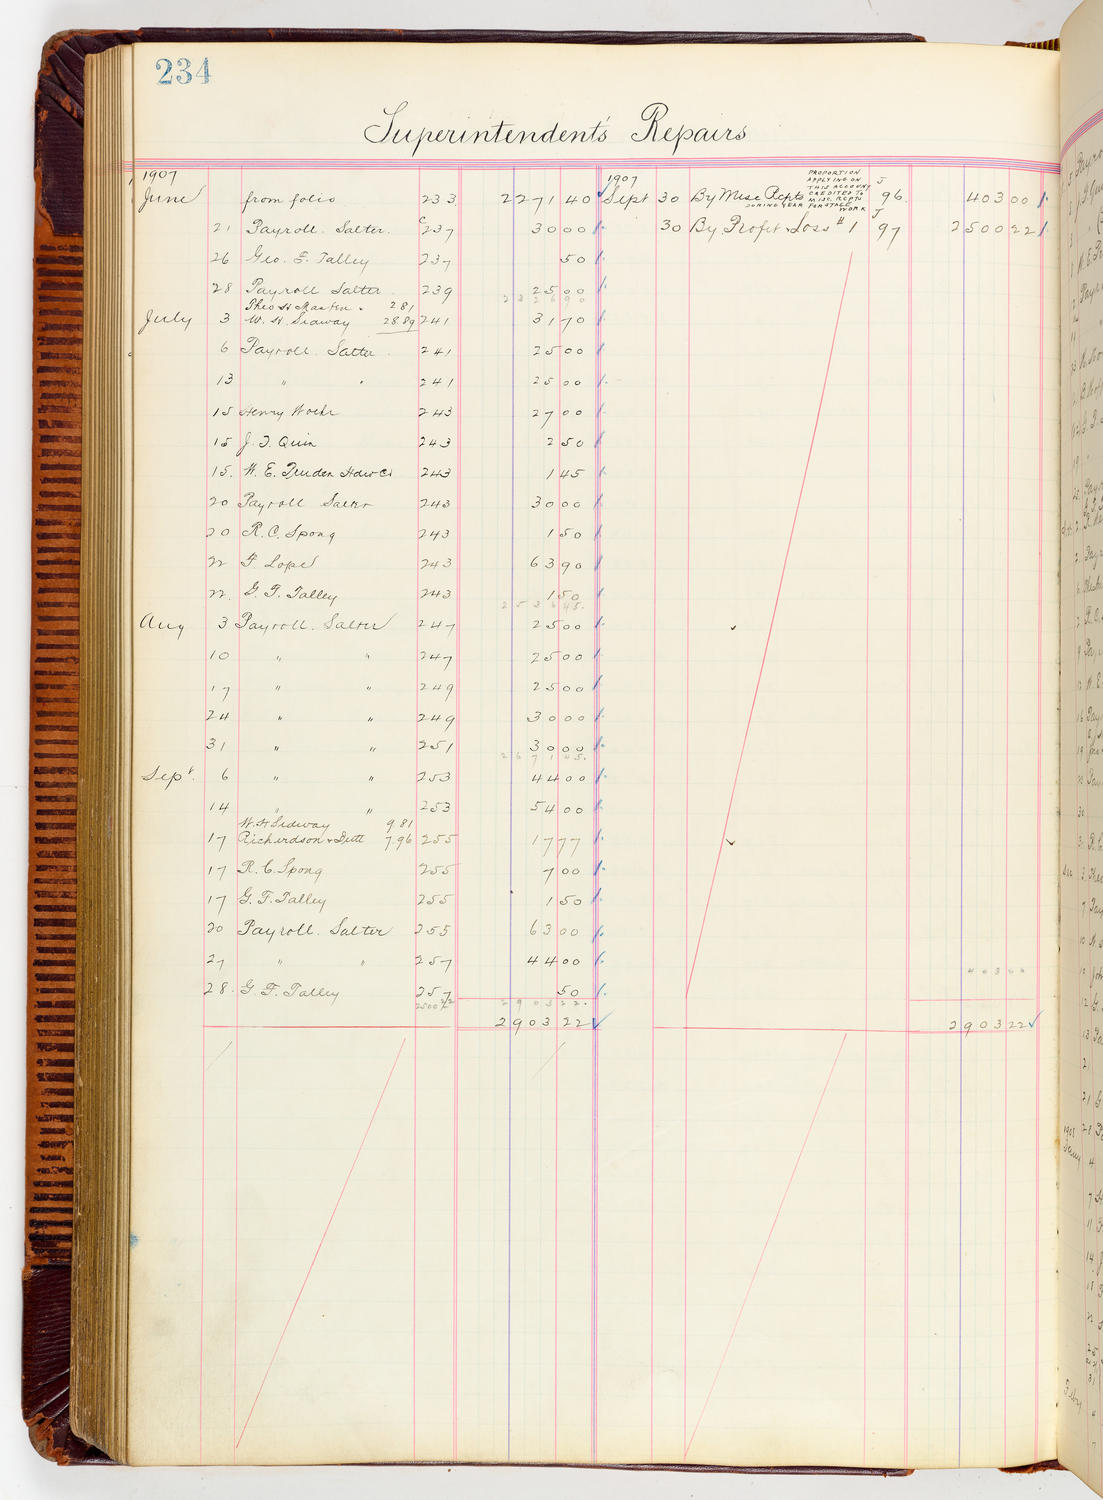 234
Superintendent's Repairs
1907
June from folio 233 2271 40
21 Payroll. Salter. C 237 30 00
26 Geo. F. Talley 237 50
28 Payroll Salter 239 25 00
2326 90
Theo H 2 81
July 3 W. H. Sidway 28 89 241 31 70
6 Payroll. Salter 241 25 00
13 " " 241 25 00
15 Henry 243 27 00
15 J. T. Quin 243 2 50
15. W. E. Hdw Co 243 1 45
20 Payroll Salter 243 30 00
20 R. C. Spong 243 1 50
22 F. Lopes 243 63 90
22. G. F. Talley 243 1 50
2536 45.
Aug 3 Payroll. Salter 247 25 00
10 " " 247 25 00
17 " " 249 25 00
24 " " 249 30 00
31 " " 251 30 00
2671 45.
Sept. 6 " " 253 44 00
14 " " 253 54 00
W. H. Sidway 9 81
17 Richardson & 7.96 255 17 77
17 R. C. Spong 255 7 00
17 G. F. Talley 255 1 50
20 Payroll. Salter 255 63 00
27 " " 257 44 00
28. G. F. Talley 257 50
2500 22 2903 22.
2903 22
1907
Sept 30 By Misc Rcpts DURING YEAR PROPORTION APPLYING ON THIS ACCOUNT CREDITED TO MISC. RCPTS FOR STAGE WORK J 96. 403 00
30 By Profit & Loss #1 J 97 2500 22
403 00
2903 22